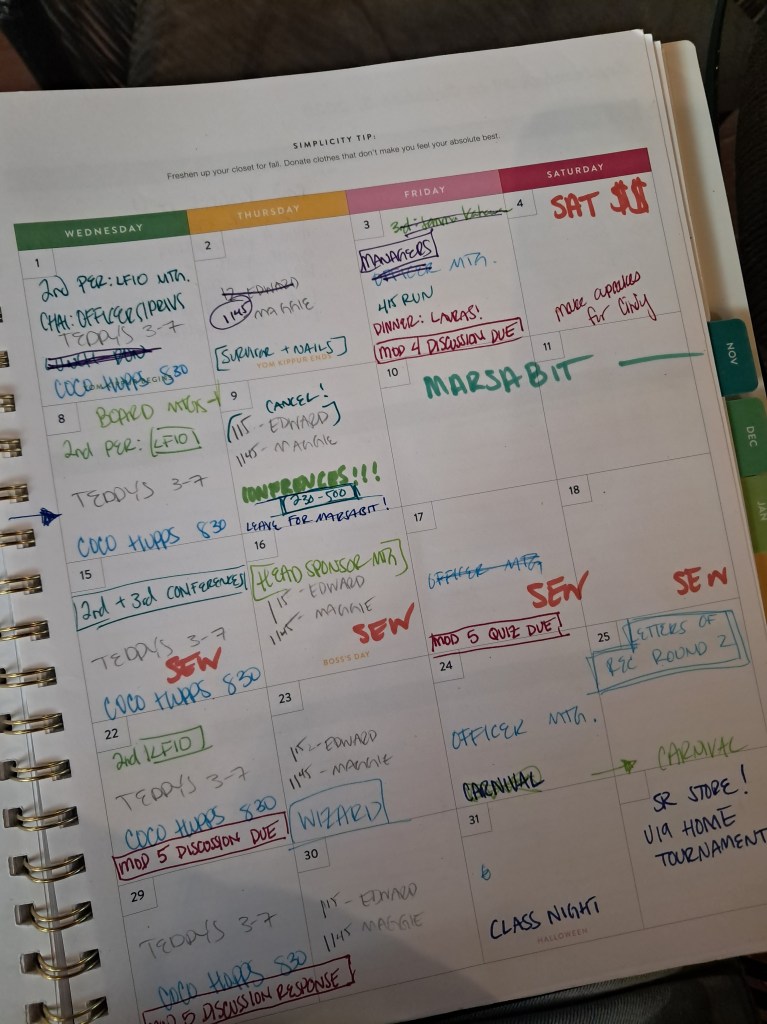 SIMPLICITY TIP:
Freshen up your closet for fall. Donate clothes that don't make you feel your absolute best.
WEDNESDAY
THURSDAY
FRIDAY
SATURDAY
1
2nd PER: LF10 MTG.
CHAI: OFFICER
TEDDYS 3-7
COCO HUPPS 830
2
12 EDWARD
1145 MAGGIE
[SURVIVOR + NAILS]
YOM KIPPUR ENDS
3
3rd:
MANAGERS
OFFICER MTG.
RUN
DINNER: LAURAS!
MOD 4 DISCUSSION DUE
4
SAT $$
make cupcakes
for
8
BOARD MTGS
2nd PER: LF10
TEDDYS 3-7
COCO HUPPS 830
9
CANCEL!
115 - EDWARD
1145 - MAGGIE
CONFERENCES!!!
230-500
LEAVE FOR MARSABIT!
10
MARSABIT
11
15
2nd + 3rd CONFERENCES
TEDDYS 3-7
SEW
COCO HUPPS 830
16
HEAD SPONSOR MTG
115 - EDWARD
1145 - MAGGIE
SEW
BOSS'S DAY
17
OFFICER MTG
SEW
MOD 5 QUIZ DUE
18
SEW
22
2nd LF10
TEDDYS 3-7
COCO HUPPS 830
MOD 5 DISCUSSION DUE
23
115 - EDWARD
1145 - MAGGIE
WIZARD
24
OFFICER MTG.
CARNIVAL
25
LETTERS OF
REC ROUND 2
CARNIVAL
SR STORE!
U19 HOME
TOURNAMENT
29
TEDDYS 3-7
COCO HUPPS 830
MOD 5 DISCUSSION RESPONSE
30
115 - EDWARD
1145 MAGGIE
31
6
CLASS NIGHT
HALLOWEEN
NOV
DEC
JAN